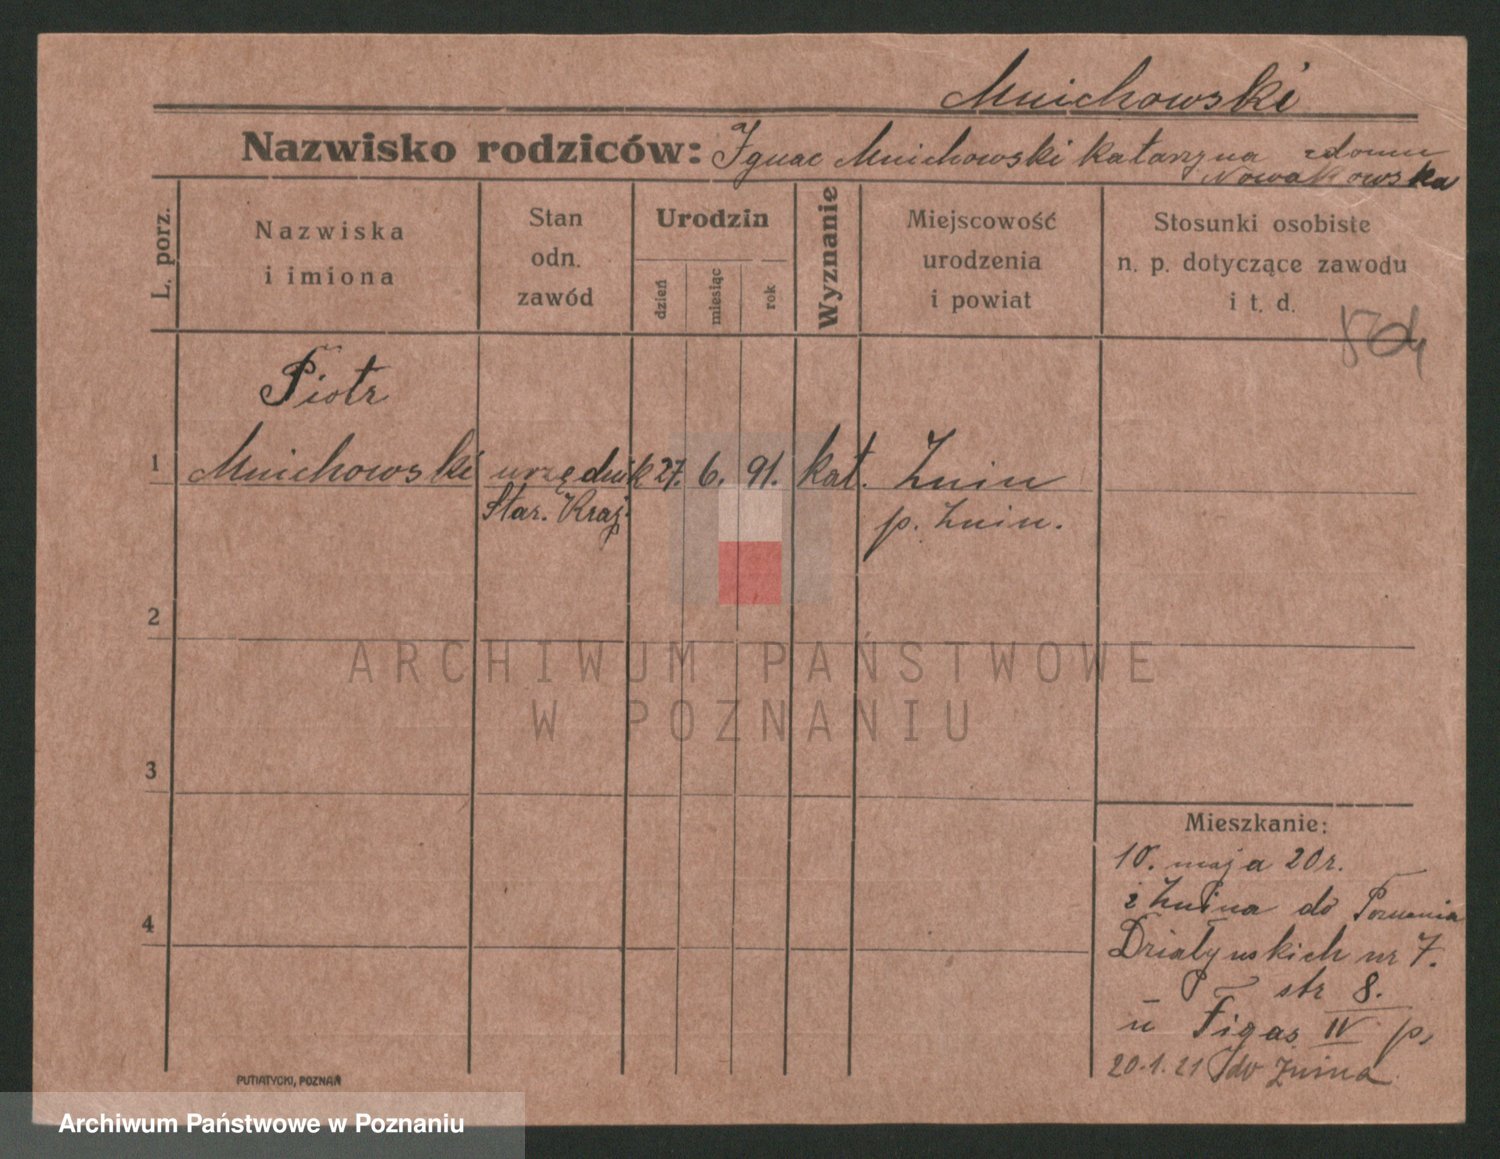 Mnichowski
Nazwisko rodziców: Ignac Mnichowski Katarzyna z domu
Nowakowska
L. porz.
Nazwiska
i imiona
Stan
odn.
zawód
Urodzin
dzień
miesiąc
rok
Wyznanie
Miejscowość
urodzenia
i powiat
Stosunki osobiste
n. p. dotyczące zawodu
i t. d.
Piotr
1 Mnichowski urzędnik 27. 6. 91. kat. Żnin
Star. Kraj. p. Żnin.
2
ARCHIWUM PAŃSTWOWE
W POZNANIU
3
4
Mieszkanie:
10. maja 20 r.
z Żnina do Poznania
Działyńskich nr 7.
str 8.
u Figas IV p.
20.1.21 do Żnina
PUTIATYCKI, POZNAŃ
Archiwum Państwowe w Poznaniu